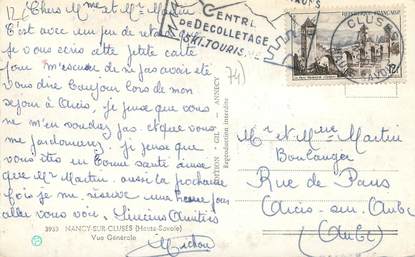 12
Chers Mme et Mr Martin
C'est avec un peu de retard
que je vous écris cette petite carte
pour m'excuser de ne pas avoir été
vous dire bonjour lors de mon
séjour à Arcis, je pense que vous
ne m'en voudrez pas, et que vous
me pardonnerez. je pense que
vous êtes en bonne santé ainsi
que Mr Martin. aussi la prochaine
fois je me réserve une heure
aller vous voir. Sincères Amitiés
Michou
3933 NANCY-SUR-CLUSES (Haute-Savoie)
Vue Générale
EDITION - GIL - ANNECY
Reproduction interdite
74)
CENTRE
DE DECOLLETAGE
SKI.TOURISME
CLUSES
HAUTE SAVOIE
REPUBLIQUE FRANCAISE
12F
Mr et Mme Martin
Boulanger
Rue de Paris
Arcis-sur-Aube
(Aube)